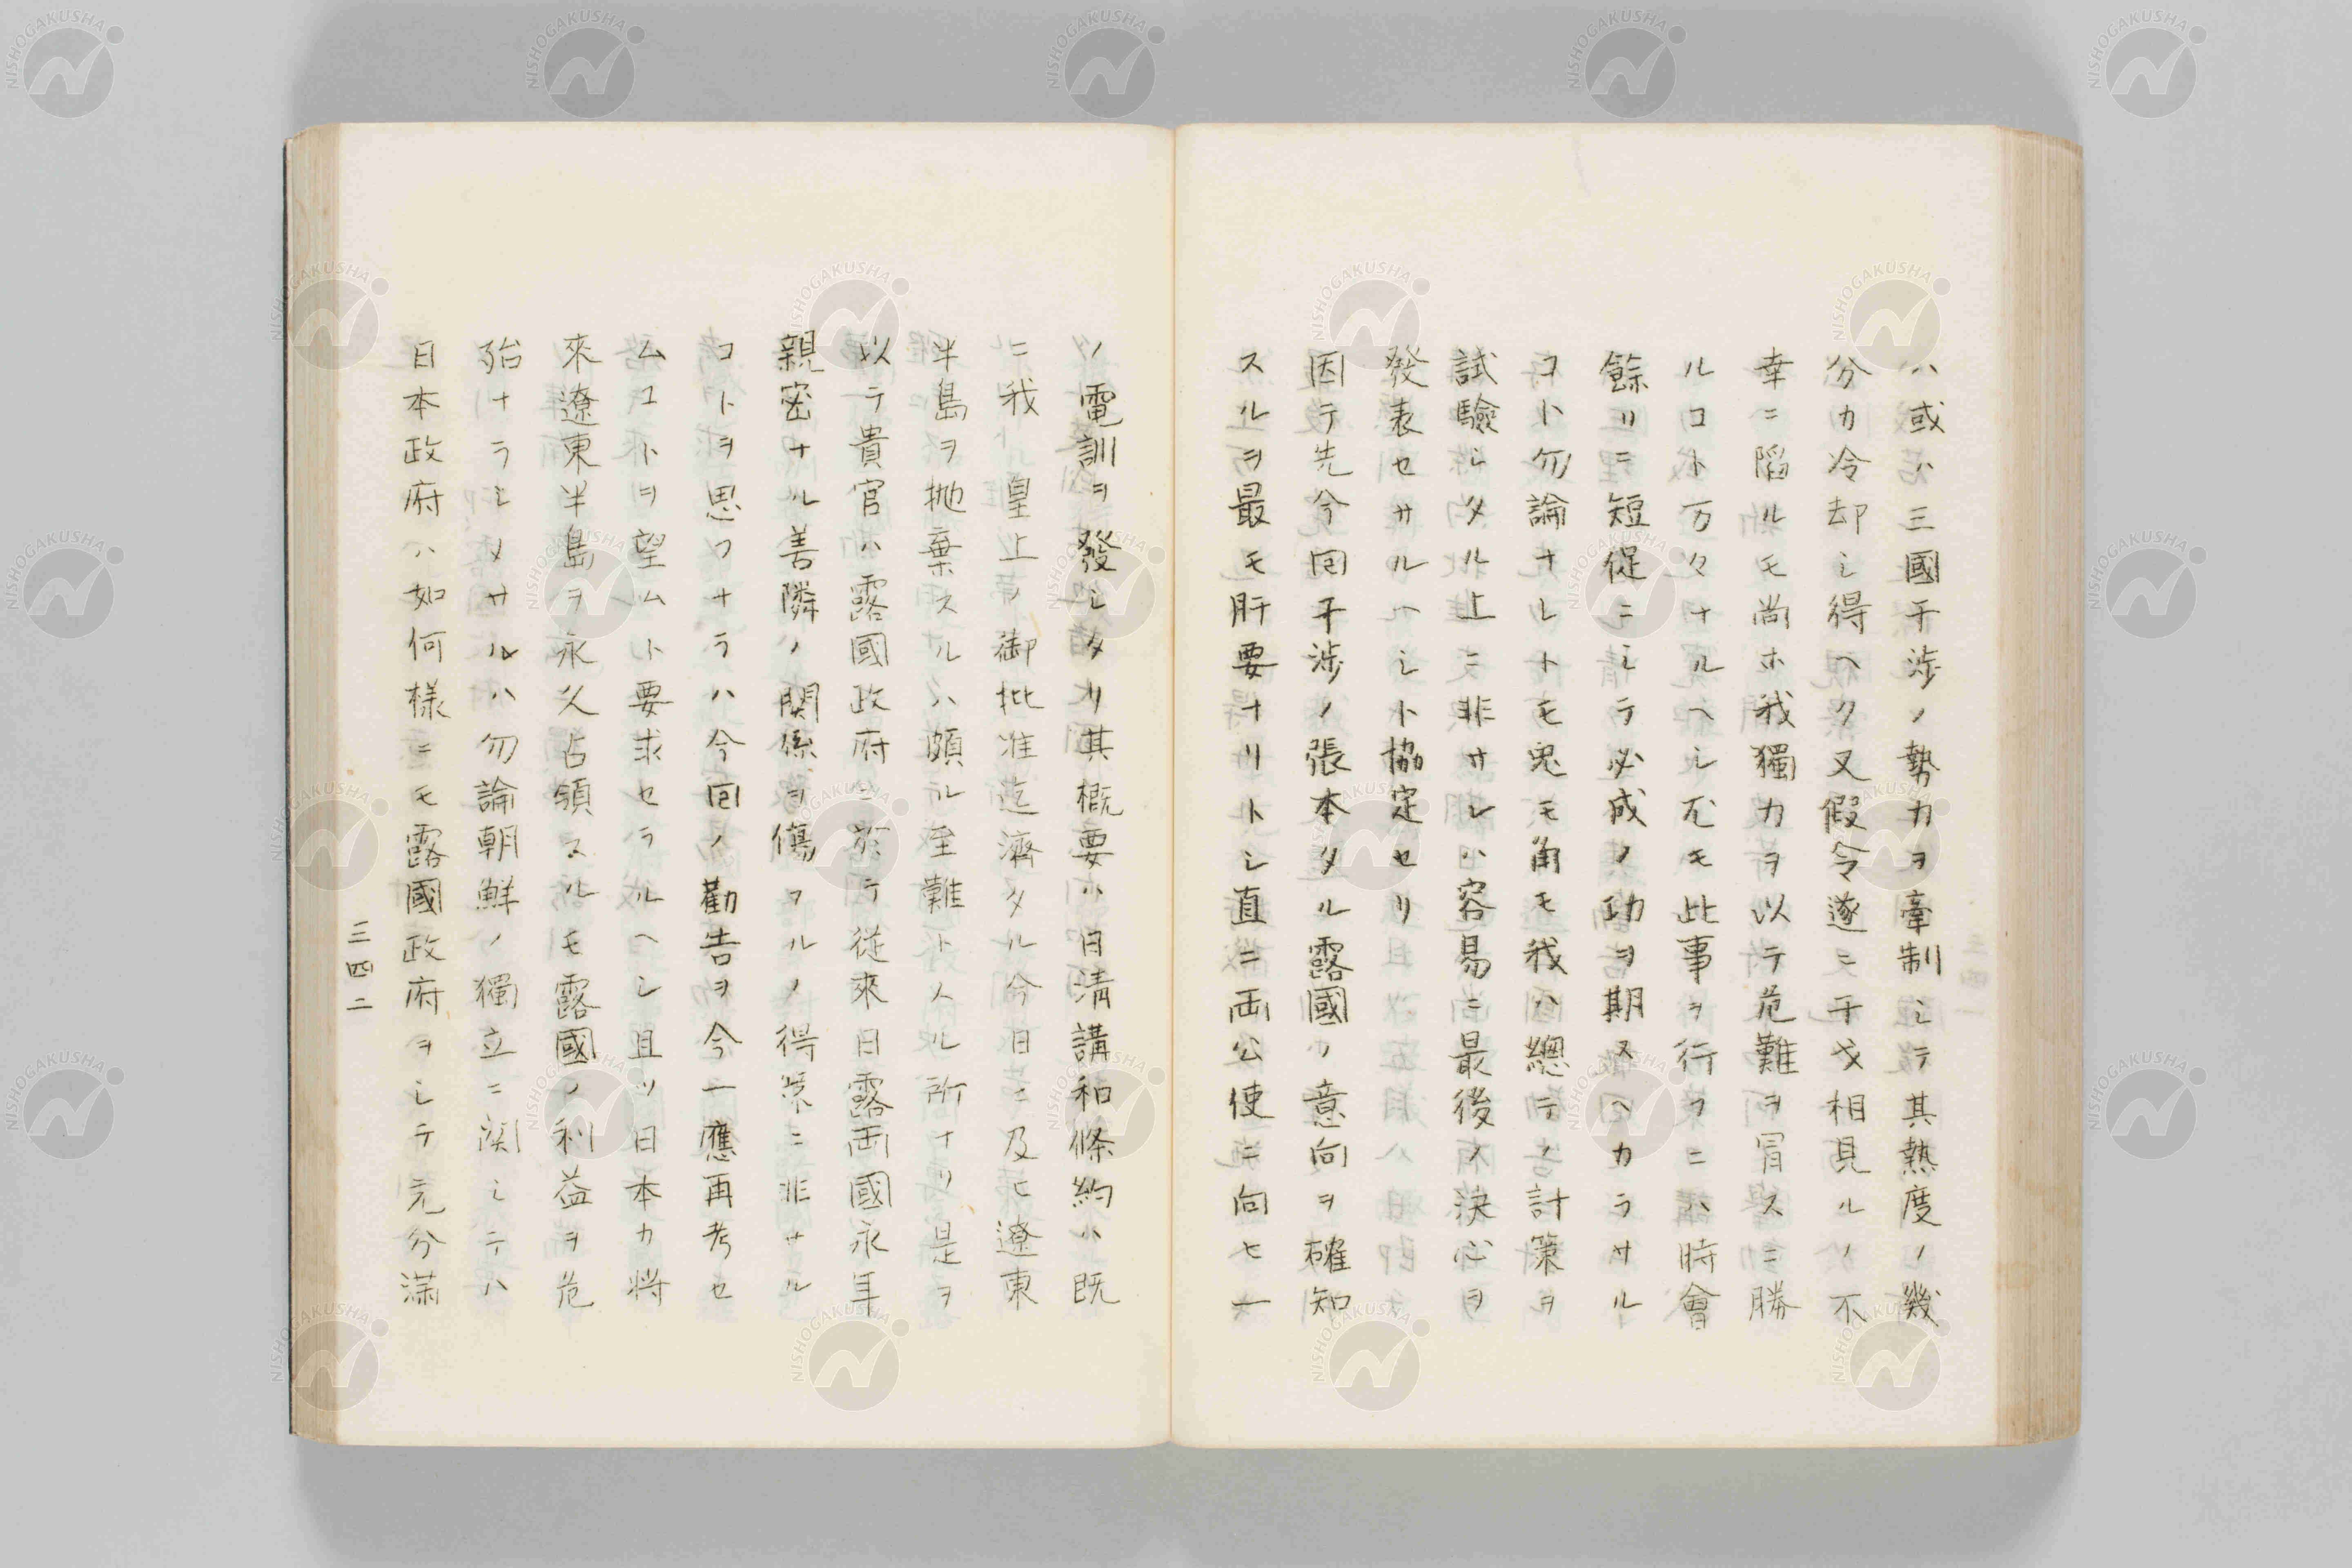 ハ或ハ三國干渉ノ勢力ヲ牽制シテ其熱度ノ幾
分カ冷却シ得ヘク又假令遂ニ干戈相見ルノ不
幸ニ陷ルモ尚ホ我獨力ヲ以テ危難ヲ冐スニ勝
ルコト万々ナルヘシ尤モ此事ヲ行フニハ時會
餘リニ短促ニシテ必成ノ功ヲ期スヘカラサル
コト勿論ナレトモ兎モ角モ我ハ總テノ計策ヲ
試驗シタル上ニ非サレハ容易ニ最後ノ決心ヲ
發表セサルヘシト協定セリ
因テ先今囘干渉ノ張本タル露國ノ意向ヲ確知
スルヲ最モ肝要ナリトシ直ニ両公使ニ向ヒ一
ノ電訓ヲ發シタリ其概要ハ日清講和條約ハ既
ニ我 皇上ノ御批准迄濟タル今日ニ及ヒ遼東
半島ヲ抛棄スルハ頗ル至難トスル所ナリ是ヲ
以テ貴官ハ露國政府ニ於テ従來日露両國永年
親密ナル善隣ノ関係ヲ傷フルノ得策ニ非サル
コトヲ思フナラハ今囘ノ勸告ヲ今一應再考セ
ムコトヲ望ムト要求セラルヘシ且ツ日本カ将
來遼東半島ヲ永久占領スルモ露國ノ利益ヲ危
殆ナラシメサルハ勿論朝鮮ノ獨立ニ関シテハ
日本政府ハ如何様ニモ露國政府ヲシテ充分滿
三四二
NISHOGAKUSHA